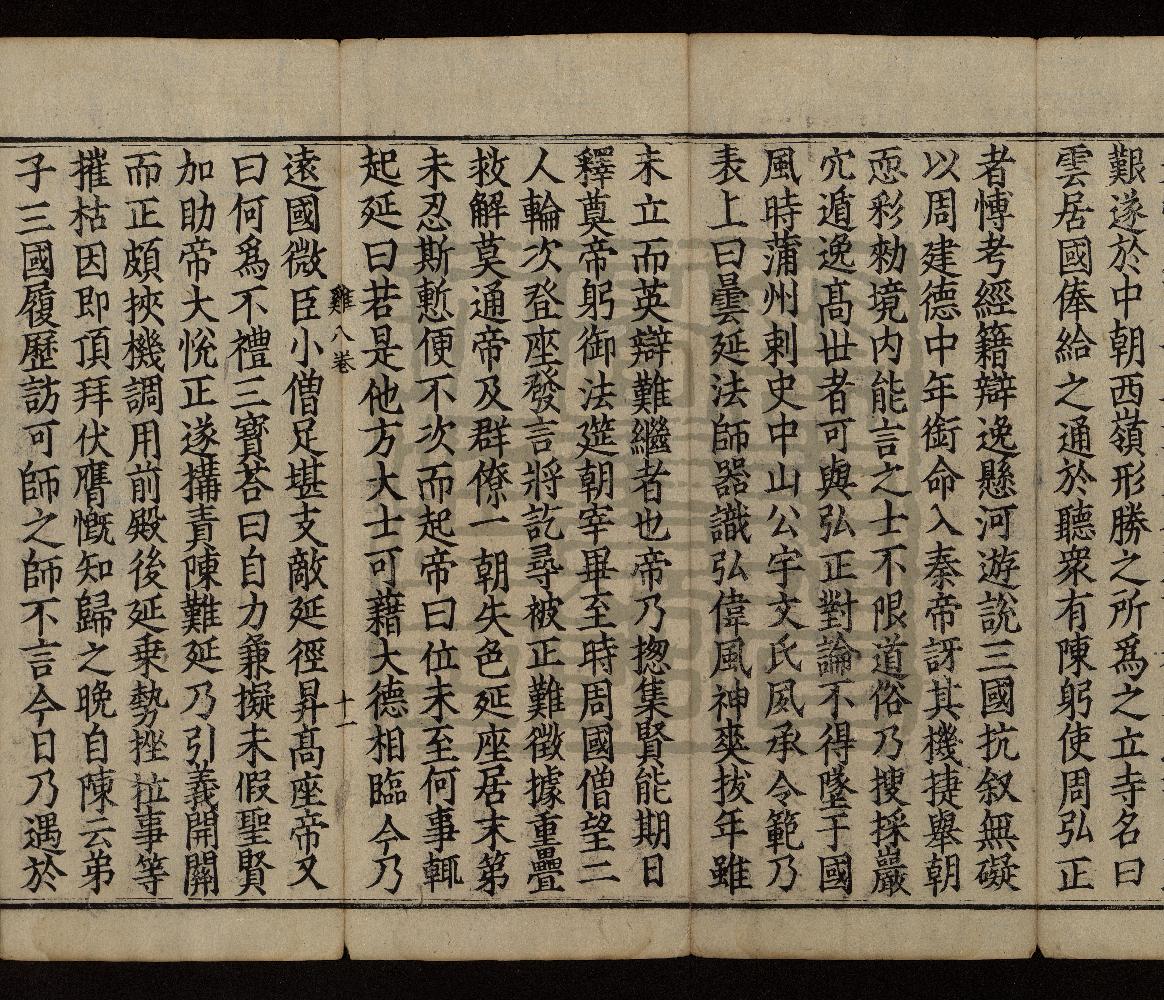 艱遂於中朝西嶺形勝之所爲之立寺名曰
雲居國俸給之通於聽衆有陳躬使周弘正
者愽考經籍辯逸懸河游說三國抗叙無礙
以周建德中年銜命入秦帝訝其機捷舉朝
恧彩勑境内能言之士不限道俗乃搜採巖
穴遁逸髙世者可與弘正對論不得墜于國
風時蒲州刺史中山公宇文氏夙承令範乃
表上曰曇延法師器識弘偉風神爽拔年雖
未立而英辯難繼者也帝乃揔集賢能期日
釋奠帝躬御法筵朝宰畢至時周國僧望二
人輪次登座發言將訖尋被正難徵據重疊
救解莫通帝及群僚一朝失色延座居末第
未忍斯慙便不次而起帝曰位未至何事輒
起延曰若是他方大士可藉大德相臨今乃
雞八卷 十一
遠國微臣小僧足堪支敵延徑昇髙座帝又
曰何爲不禮三寶荅曰自力兼擬未假聖賢
加助帝大悅正遂搆責陳難延乃引義開關
而正頗挾機調用前殿後延乗勢挫拉事等
摧枯因即頂拜伏膺慨知歸之晚自陳云弟
子三國履歷訪可師之師不言今日乃遇於